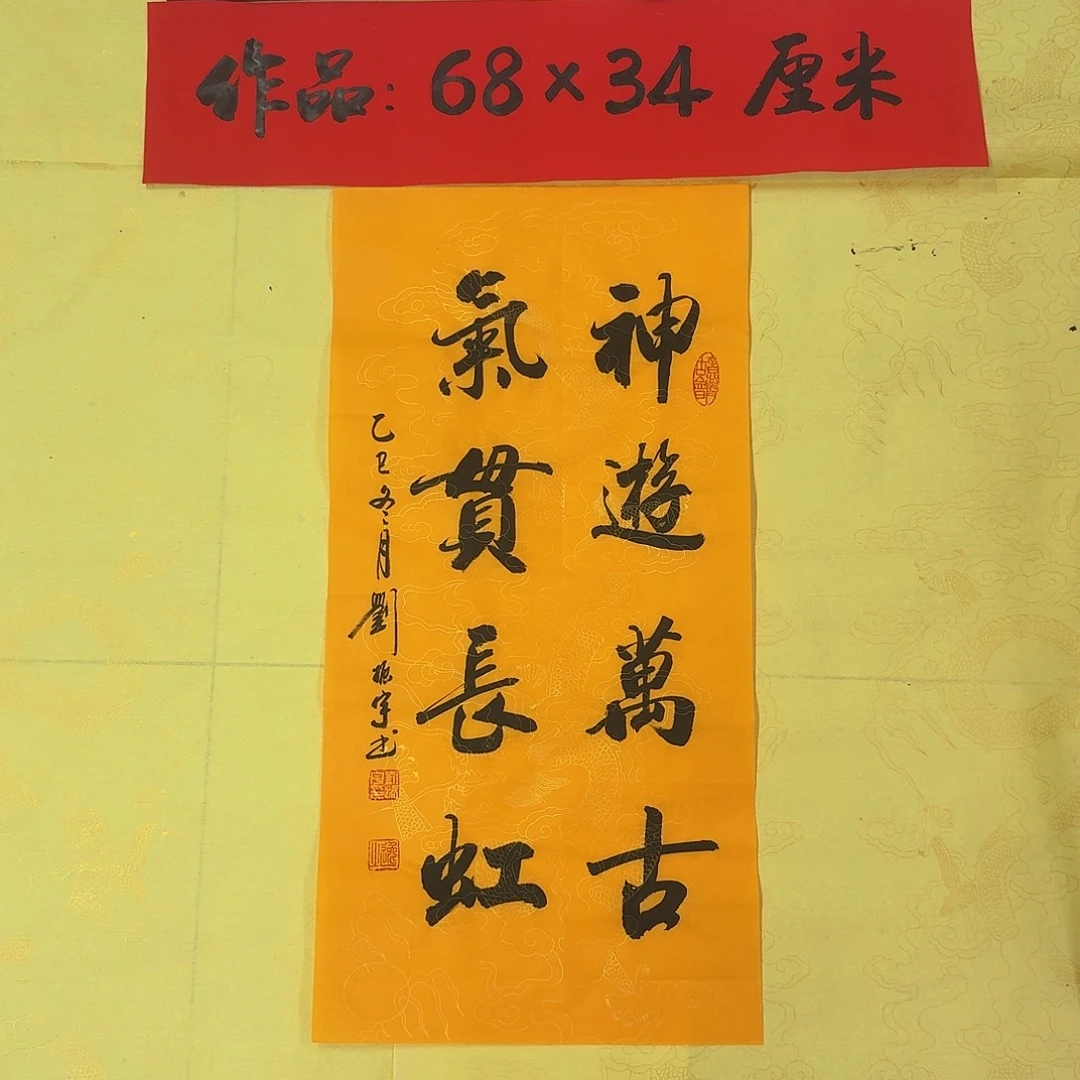 作品：68×34厘米
神遊萬古
氣貫長虹
乙巳冬月劉振宇书